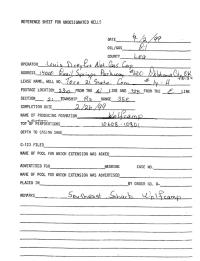 REFERENCE SHEET FOR UNDESIGNATED WELLS
DATE 4/2/99
OIL/GAS
COUNTY Lea
OPERATOR Louis Dreyfus Nat. Gas Corp
ADDRESS 14000 Quail Springs Parkway #600 Oklahoma City, OK
LEASE NAME, WELL NO. State Com #
FOOTAGE LOCATION FROM THE LINE AND FROM THE E LINE
SECTION 21 TOWNSHIP RANGE 35E
COMPLETION DATE 2/26/99
NAME OF PRODUCING FORMATION Wolfcamp
TOP OF PERFORATIONS 10608-10801
DEPTH TO CASING SHOE
C-123 FILED
NAME OF POOL FOR WHICH EXTENSION WAS ASKED
ADVERTISED FOR HEARING CASE NO.
NAME OF POOL FOR WHICH EXTENSION WAS ADVERTISED
PLACED IN BY ORDER NO. R-
REMARKS Southeast Wolfcamp